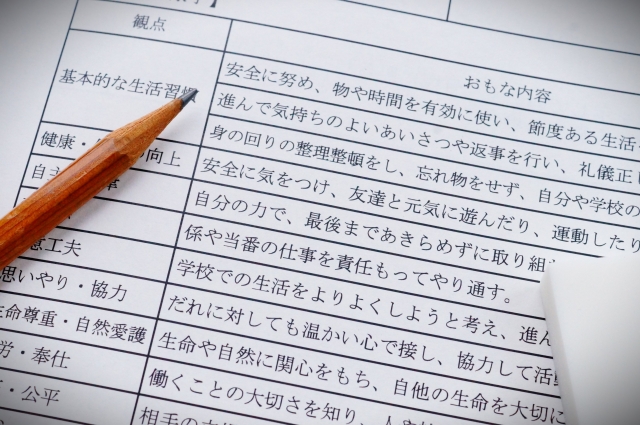 】
観点
おもな内容
基本的な生活習慣
安全に努め、物や時間を有効に使い、節度ある生活
進んで気持ちのよいあいさつや返事を行い、礼儀正し
身の回りの整理整頓をし、忘れ物をせず、自分や学校の
健康・向上
安全に気をつけ、友達と元気に遊んだり、運動したり
自主
自分の力で、最後まであきらめずに取り組
係や当番の仕事を責任もってやり通す。
工夫
学校での生活をよりよくしようと考え、進ん
思いやり・協力
だれに対しても温かい心で接し、協力して活動
生命尊重・自然愛護
生命や自然に関心をもち、自他の生命を大切に
労・奉仕
働くことの大切さを知り、人や
・公平
相手の